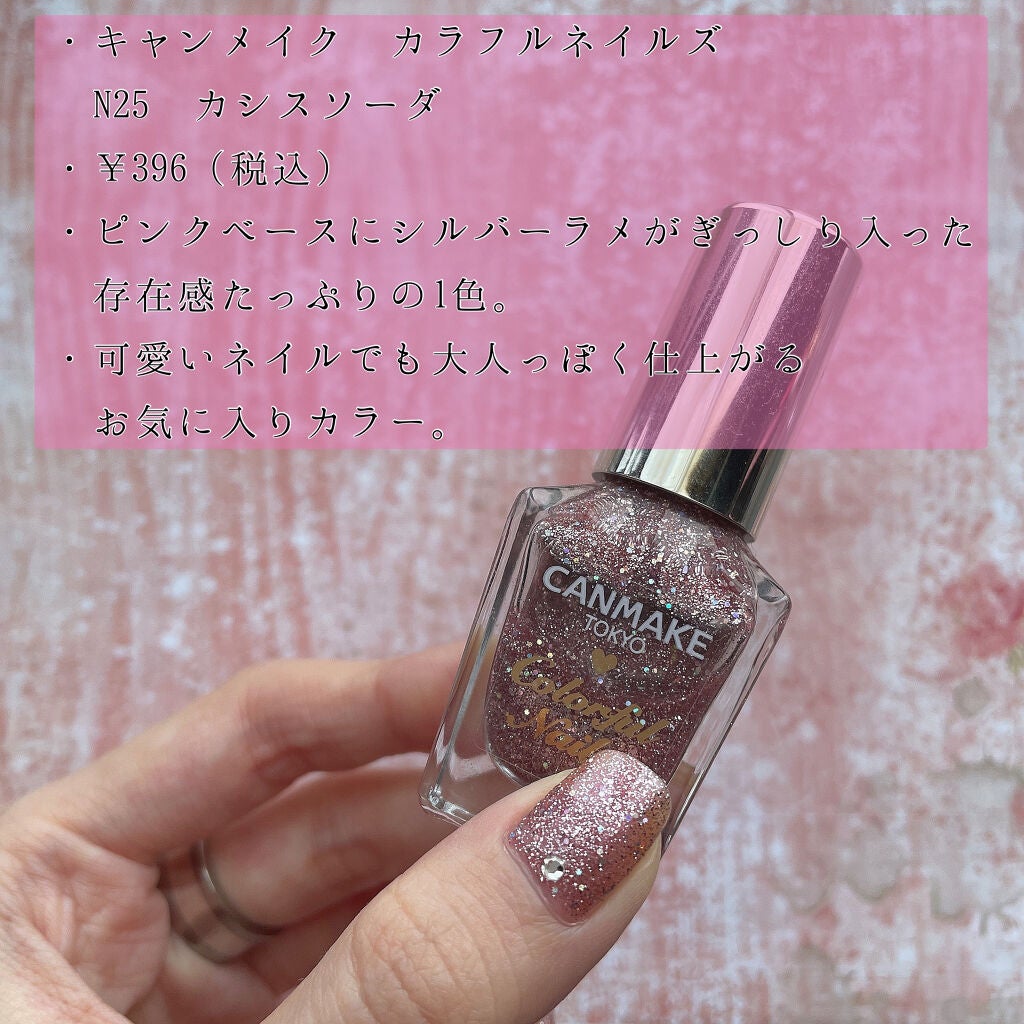 ・キャンメイク　カラフルネイルズ
N25　カシスソーダ
・￥396（税込）
・ピンクベースにシルバーラメがぎっしり入った
存在感たっぷりの1色。
・可愛いネイルでも大人っぽく仕上がる
お気に入りカラー。
CANMAKE
TOKYO
Colorful